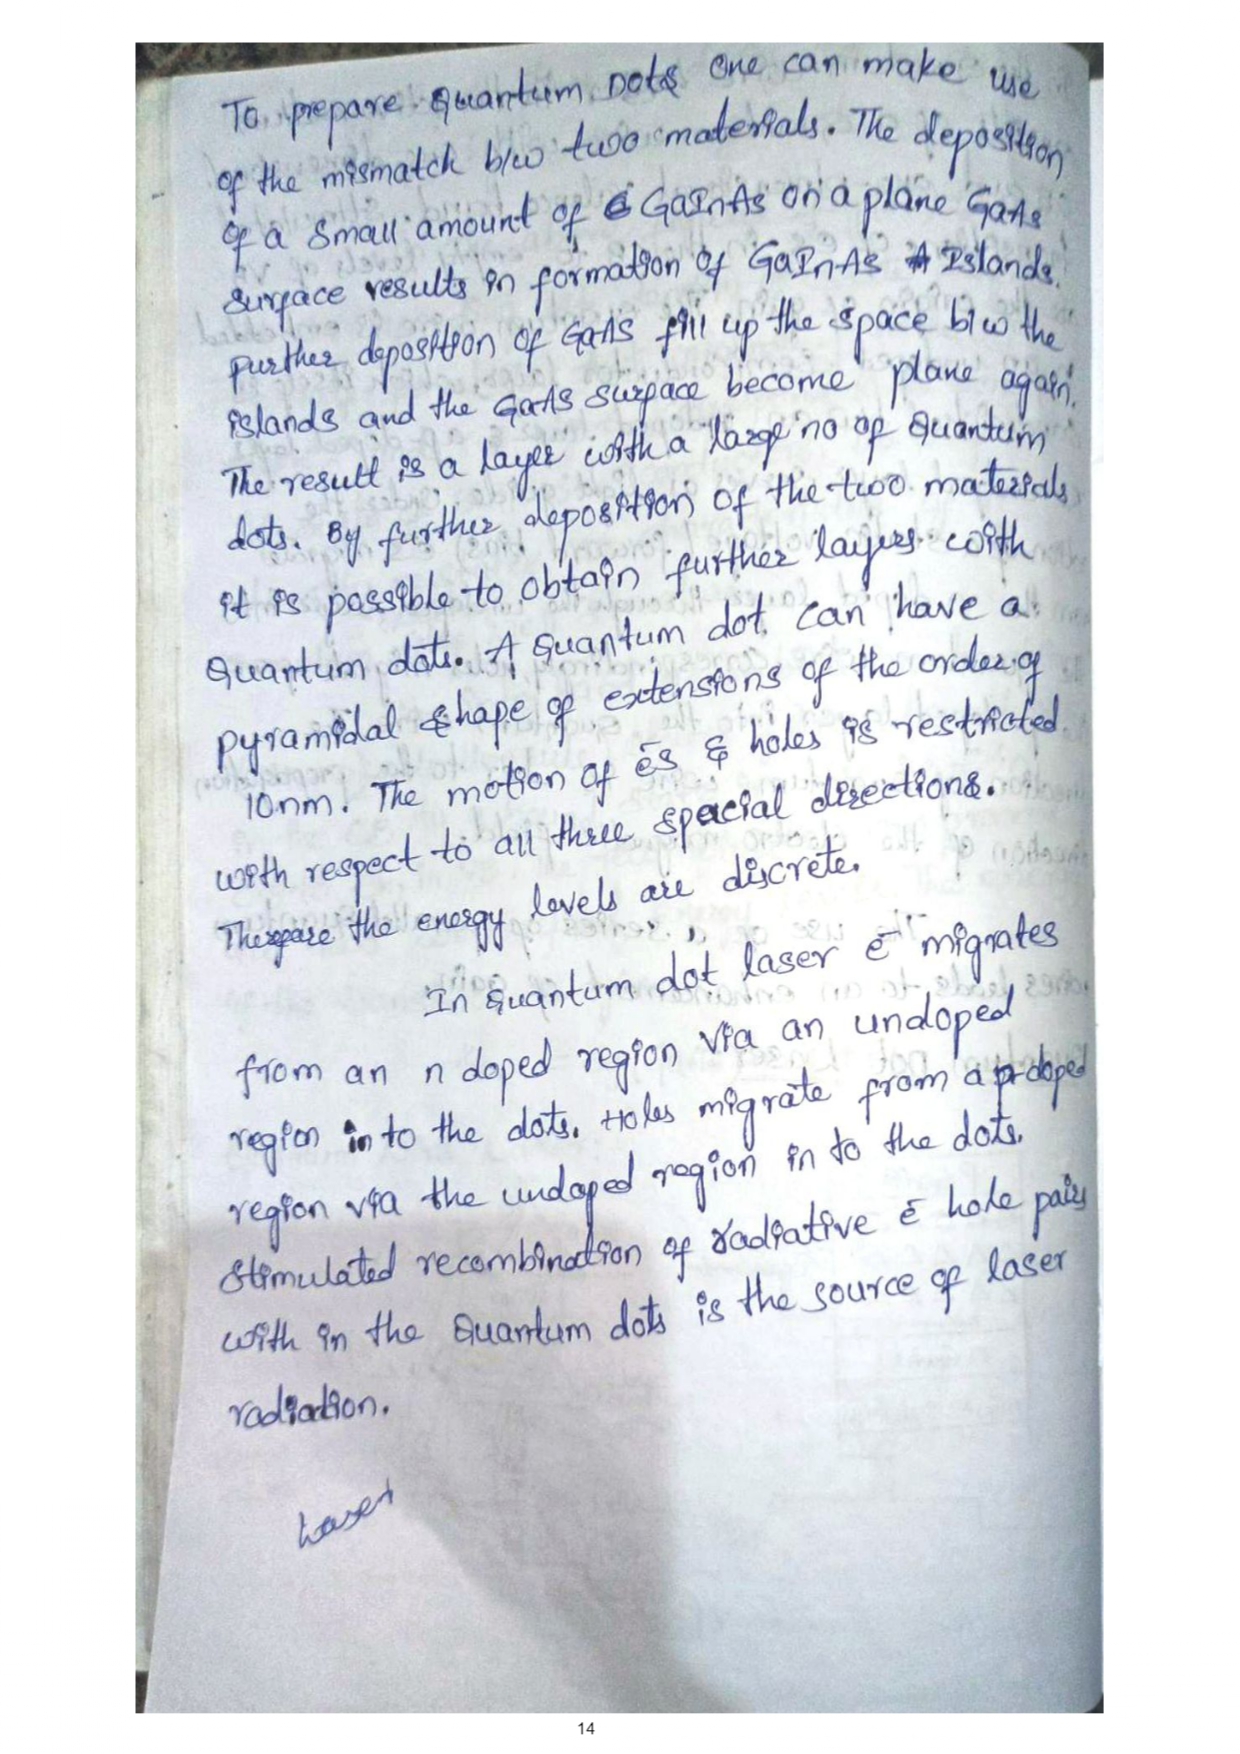 To prepare Quantum Dots one can make use
of the mismatch b/w two materials. The deposition
of a small amount of GaInAs on a plane GaAs
surface results in formation of GaInAs Islands.
Further deposition of GaAs fill up the space b/w the
islands and the GaAs surface become plane again.
The result is a layer with a large no of Quantum
dots. By further deposition of the two materials
it is possible to obtain further layers with
Quantum dots. A Quantum dot can have a
pyramidal shape of extensions of the order of
10nm. The motion of ēs & holes is restricted
with respect to all three spacial directions.
Therefore the energy levels are discrete.
In Quantum dot laser ē migrates
from an n doped region via an undoped
region in to the dots. Holes migrate from a p-doped
region via the undoped region in to the dots.
Stimulated recombination of radiative ē hole pairs
with in the Quantum dots is the source of laser
radiation.
Laser
14